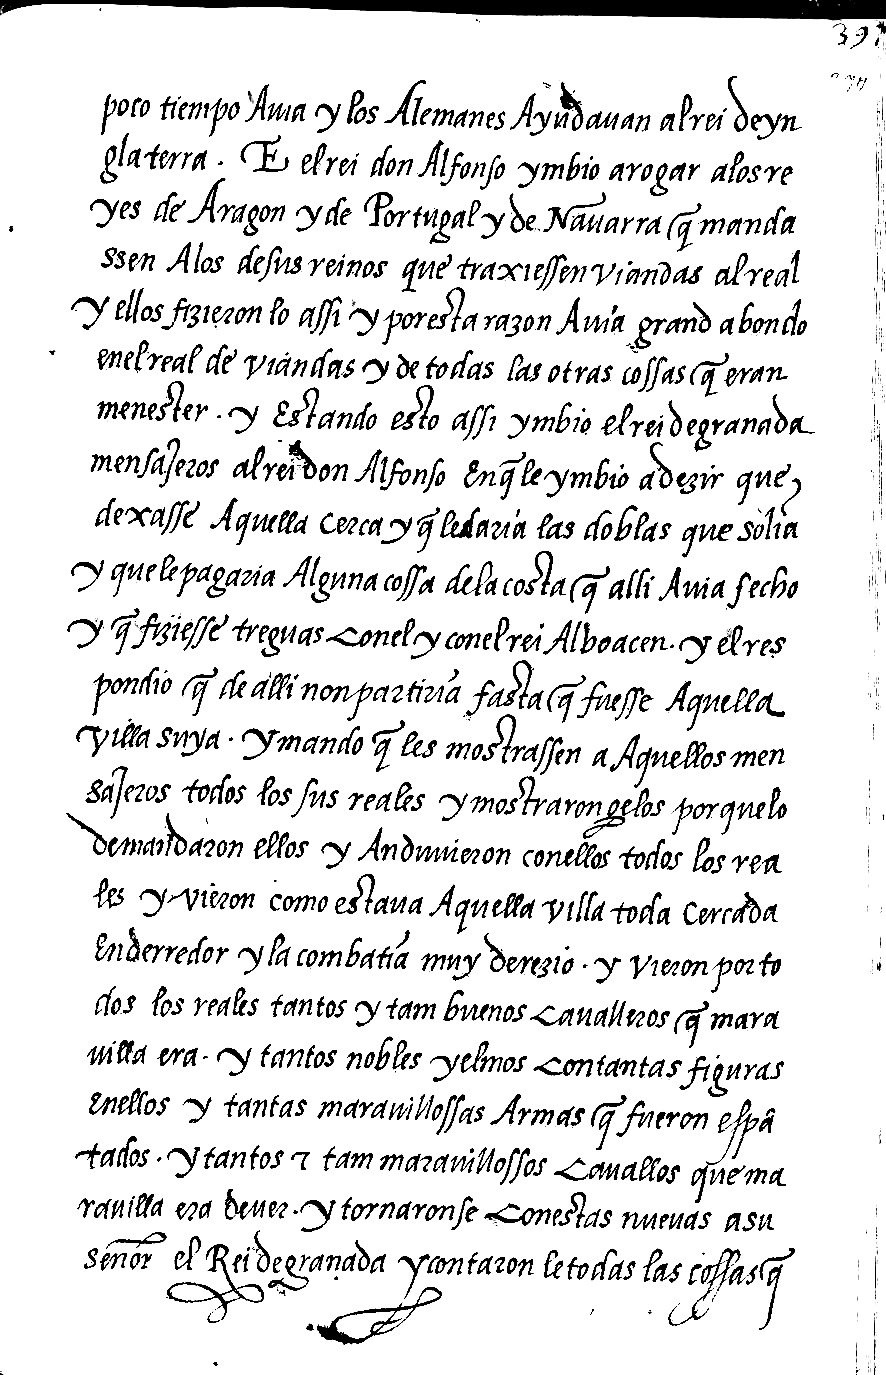 391
poco tiempo Auia y los Alemanes Ayudauan al rei de yn
glaterra . E el rei don Alfonso ymbio arogar alos re
yes de Aragon y de Portugal y de Nauarra q̃ manda
ssen Alos de sus reinos que traxiessen viandas al real
y ellos fizieron lo assi y por esta razon Auia grand abondo
en el real de viandas y de todas las otras cossas q̃ eran
menester . y Estando esto assi ymbio el rei de granada
mensajeros al rei don Alfonso En q̃ le ymbio a dezir que
dexasse Aquella cerca y q̃ le daria las doblas que solia
y que le pagaria Alguna cossa de la costa q̃ alli Auia fecho
y q̃ fiziesse treguas con el y con el rei Alboacen . y el res
pondio q̃ de alli non partiria fasta q̃ fuesse Aquella
villa suya . y mando q̃ les mostrassen a Aquellos men
sajeros todos los sus reales y mostraron gelos porque lo
demandaron ellos y Anduuieron con ellos todos los rea
les y vieron como estaua Aquella villa toda cercada
En derredor y la combatia muy de rezio . y vieron por to
dos los reales tantos y tam buenos caualleros q̃ mara
uilla era . y tantos nobles yelmos con tantas figuras
En ellos y tantas marauillossas Armas q̃ fueron espã
tados . y tantos τ tam marauillossos cauallos que ma
rauilla era de uer . y tornaronse con estas nueuas a su
señor el Rei de granada y contaron le todas las cossas q̃